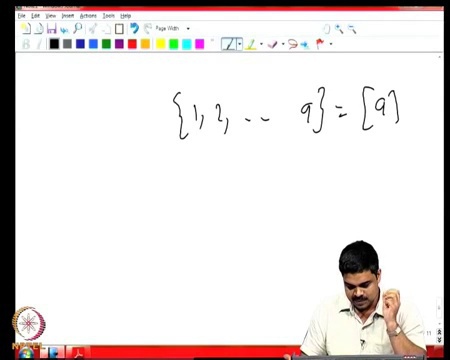 File Edit View Insert Actions Tools Help
Page Width
{1, 2, .. 9} = [9]